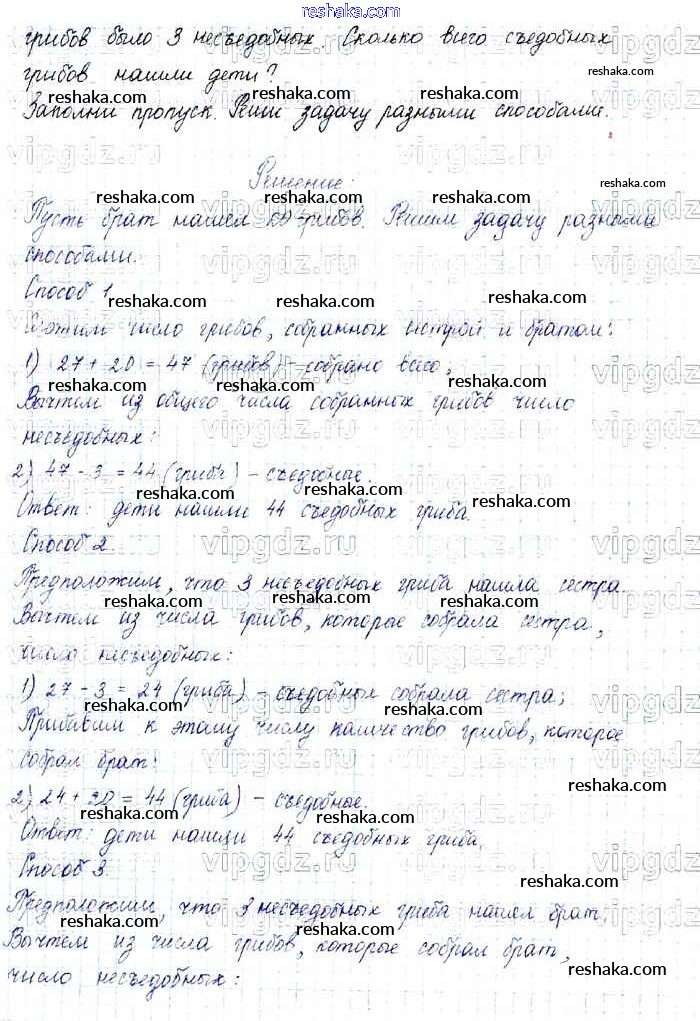 reshaka.com
грибов было 3 несъедобных. Сколько всего съедобных
грибов нашли дети?
Заполни пропуск. Реши задачу разными способами.
Решение:
Пусть брат нашел 20 грибов. Решим задачу разными
способами.
Способ 1.
Сложим число грибов, собранных сестрой и братом:
1) 27 + 20 = 47 (грибов) – собрано всего;
Вычтем из общего числа собранных грибов число
несъедобных:
2) 47 - 3 = 44 (гриба) – съедобные.
Ответ: дети нашли 44 съедобных гриба.
Способ 2.
Предположим, что 3 несъедобных гриба нашла сестра.
Вычтем из числа грибов, которые собрала сестра,
число несъедобных:
1) 27 - 3 = 24 (гриба) – съедобных собрала сестра;
Прибавим к этому числу количество грибов, которое
собрал брат:
2) 24 + 20 = 44 (гриба) – съедобные.
Ответ: дети нашли 44 съедобных гриба.
Способ 3.
Предположим, что 3 несъедобных гриба нашел брат.
Вычтем из числа грибов, которые собрал брат,
число несъедобных: